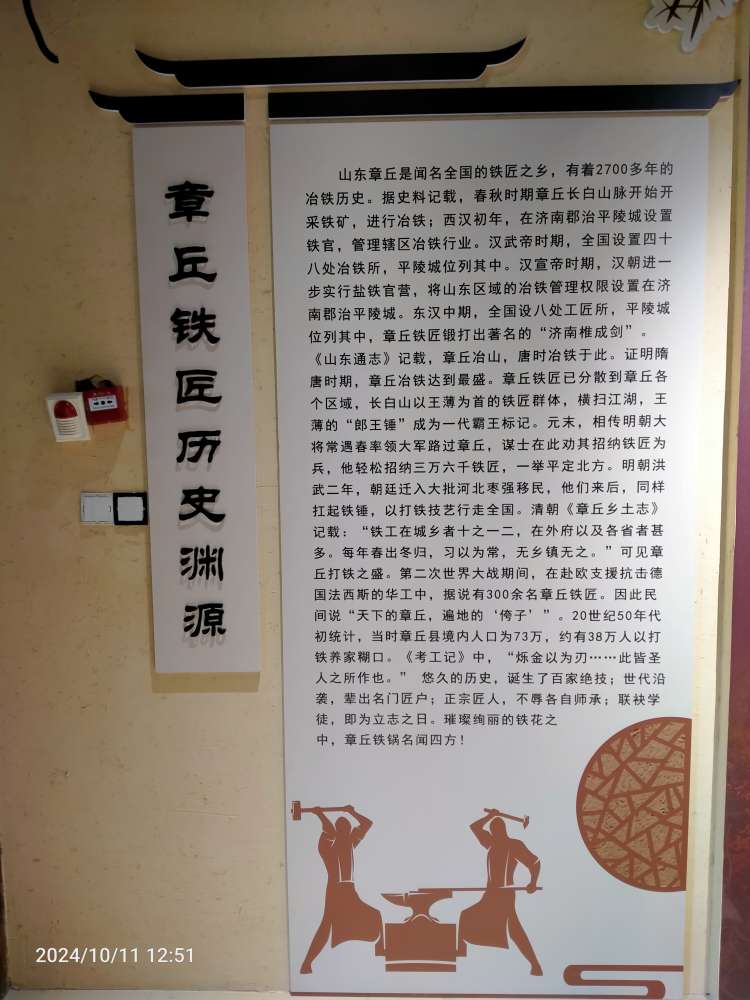 章丘铁匠历史渊源
山东章丘是闻名全国的铁匠之乡，有着2700多年的
冶铁历史。据史料记载，春秋时期章丘长白山脉开始开
采铁矿，进行冶铁；西汉初年，在济南郡治平陵城设置
铁官，管理辖区冶铁行业。汉武帝时期，全国设置四十
八处冶铁所，平陵城位列其中。汉宣帝时期，汉朝进一
步实行盐铁官营，将山东区域的冶铁管理权限设置在济
南郡治平陵城。东汉中期，全国设八处工匠所，平陵城
位列其中，章丘铁匠锻打出著名的“济南椎成剑”。
《山东通志》记载，章丘冶山，唐时冶铁于此。证明隋
唐时期，章丘冶铁达到最盛。章丘铁匠已分散到章丘各
个区域，长白山以王薄为首的铁匠群体，横扫江湖，王
薄的“郎王锤”成为一代霸王标记。元末，相传明朝大
将常遇春率领大军路过章丘，谋士在此劝其招纳铁匠为
兵，他轻松招纳三万六千铁匠，一举平定北方。明朝洪
武二年，朝廷迁入大批河北枣强移民，他们来后，同样
扛起铁锤，以打铁技艺行走全国。清朝《章丘乡土志》
记载：“铁工在城乡者十之一二，在外府以及各省者甚
多。每年春出冬归，习以为常，无乡镇无之。”可见章
丘打铁之盛。第二次世界大战期间，在赴欧支援抗击德
国法西斯的华工中，据说有300余名章丘铁匠。因此民
间说“天下的章丘，遍地的‘侉子’”。20世纪50年代
初统计，当时章丘县境内人口为73万，约有38万人以打
铁养家糊口。《考工记》中，“烁金以为刃……此皆圣
人之所作也。” 悠久的历史，诞生了百家绝技；世代沿
袭，辈出名门匠户；正宗匠人，不辱各自师承；联袂学
徒，即为立志之日。璀璨绚丽的铁花之
中，章丘铁锅名闻四方！
2024/10/11 12:51